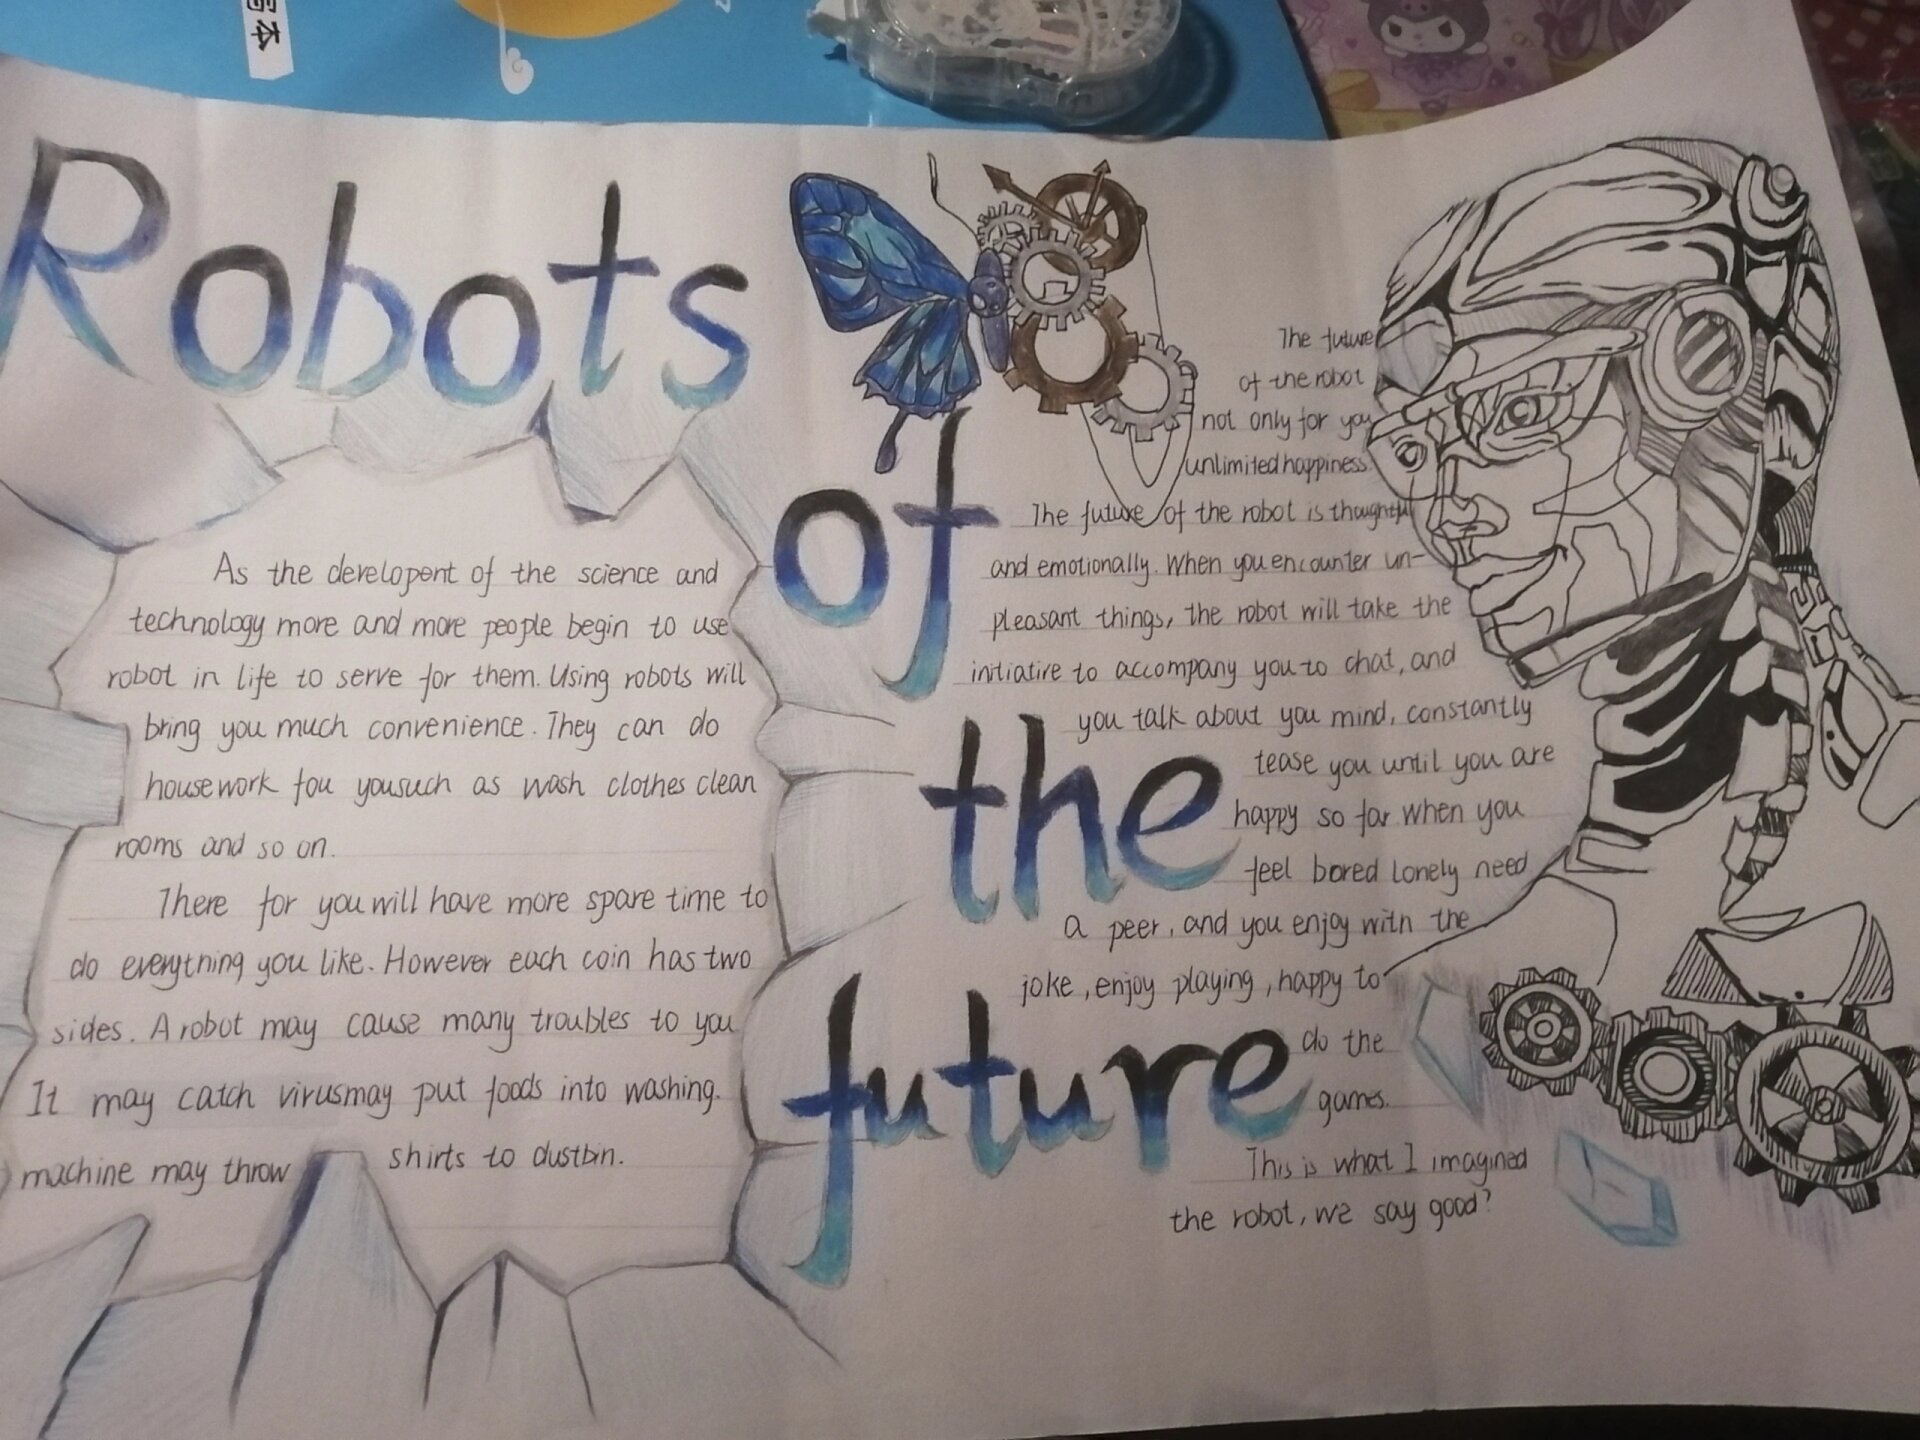 写本
Robots
of
the
future
As the developent of the science and
technology more and more people begin to use
robot in life to serve for them. Using robots will
bring you much convenience. They can do
housework fou yousuch as wash clothes clean
rooms and so on.
There for you will have more spare time to
do everything you like. However each coin has two
sides. A robot may cause many troubles to you
It may catch virusmay put foods into washing.
machine may throw shirts to dustbin.
The future
of the robot
not only for you
unlimited happiness
The future of the robot is thoughtful
and emotionally. When you encounter un-
pleasant things, the robot will take the
initiative to accompany you to chat, and
you talk about you mind, constantly
tease you until you are
happy so far when you
feel bored lonely need
a peer, and you enjoy with the
joke, enjoy playing, happy to
do the
games.
This is what I imagined
the robot, we say good?